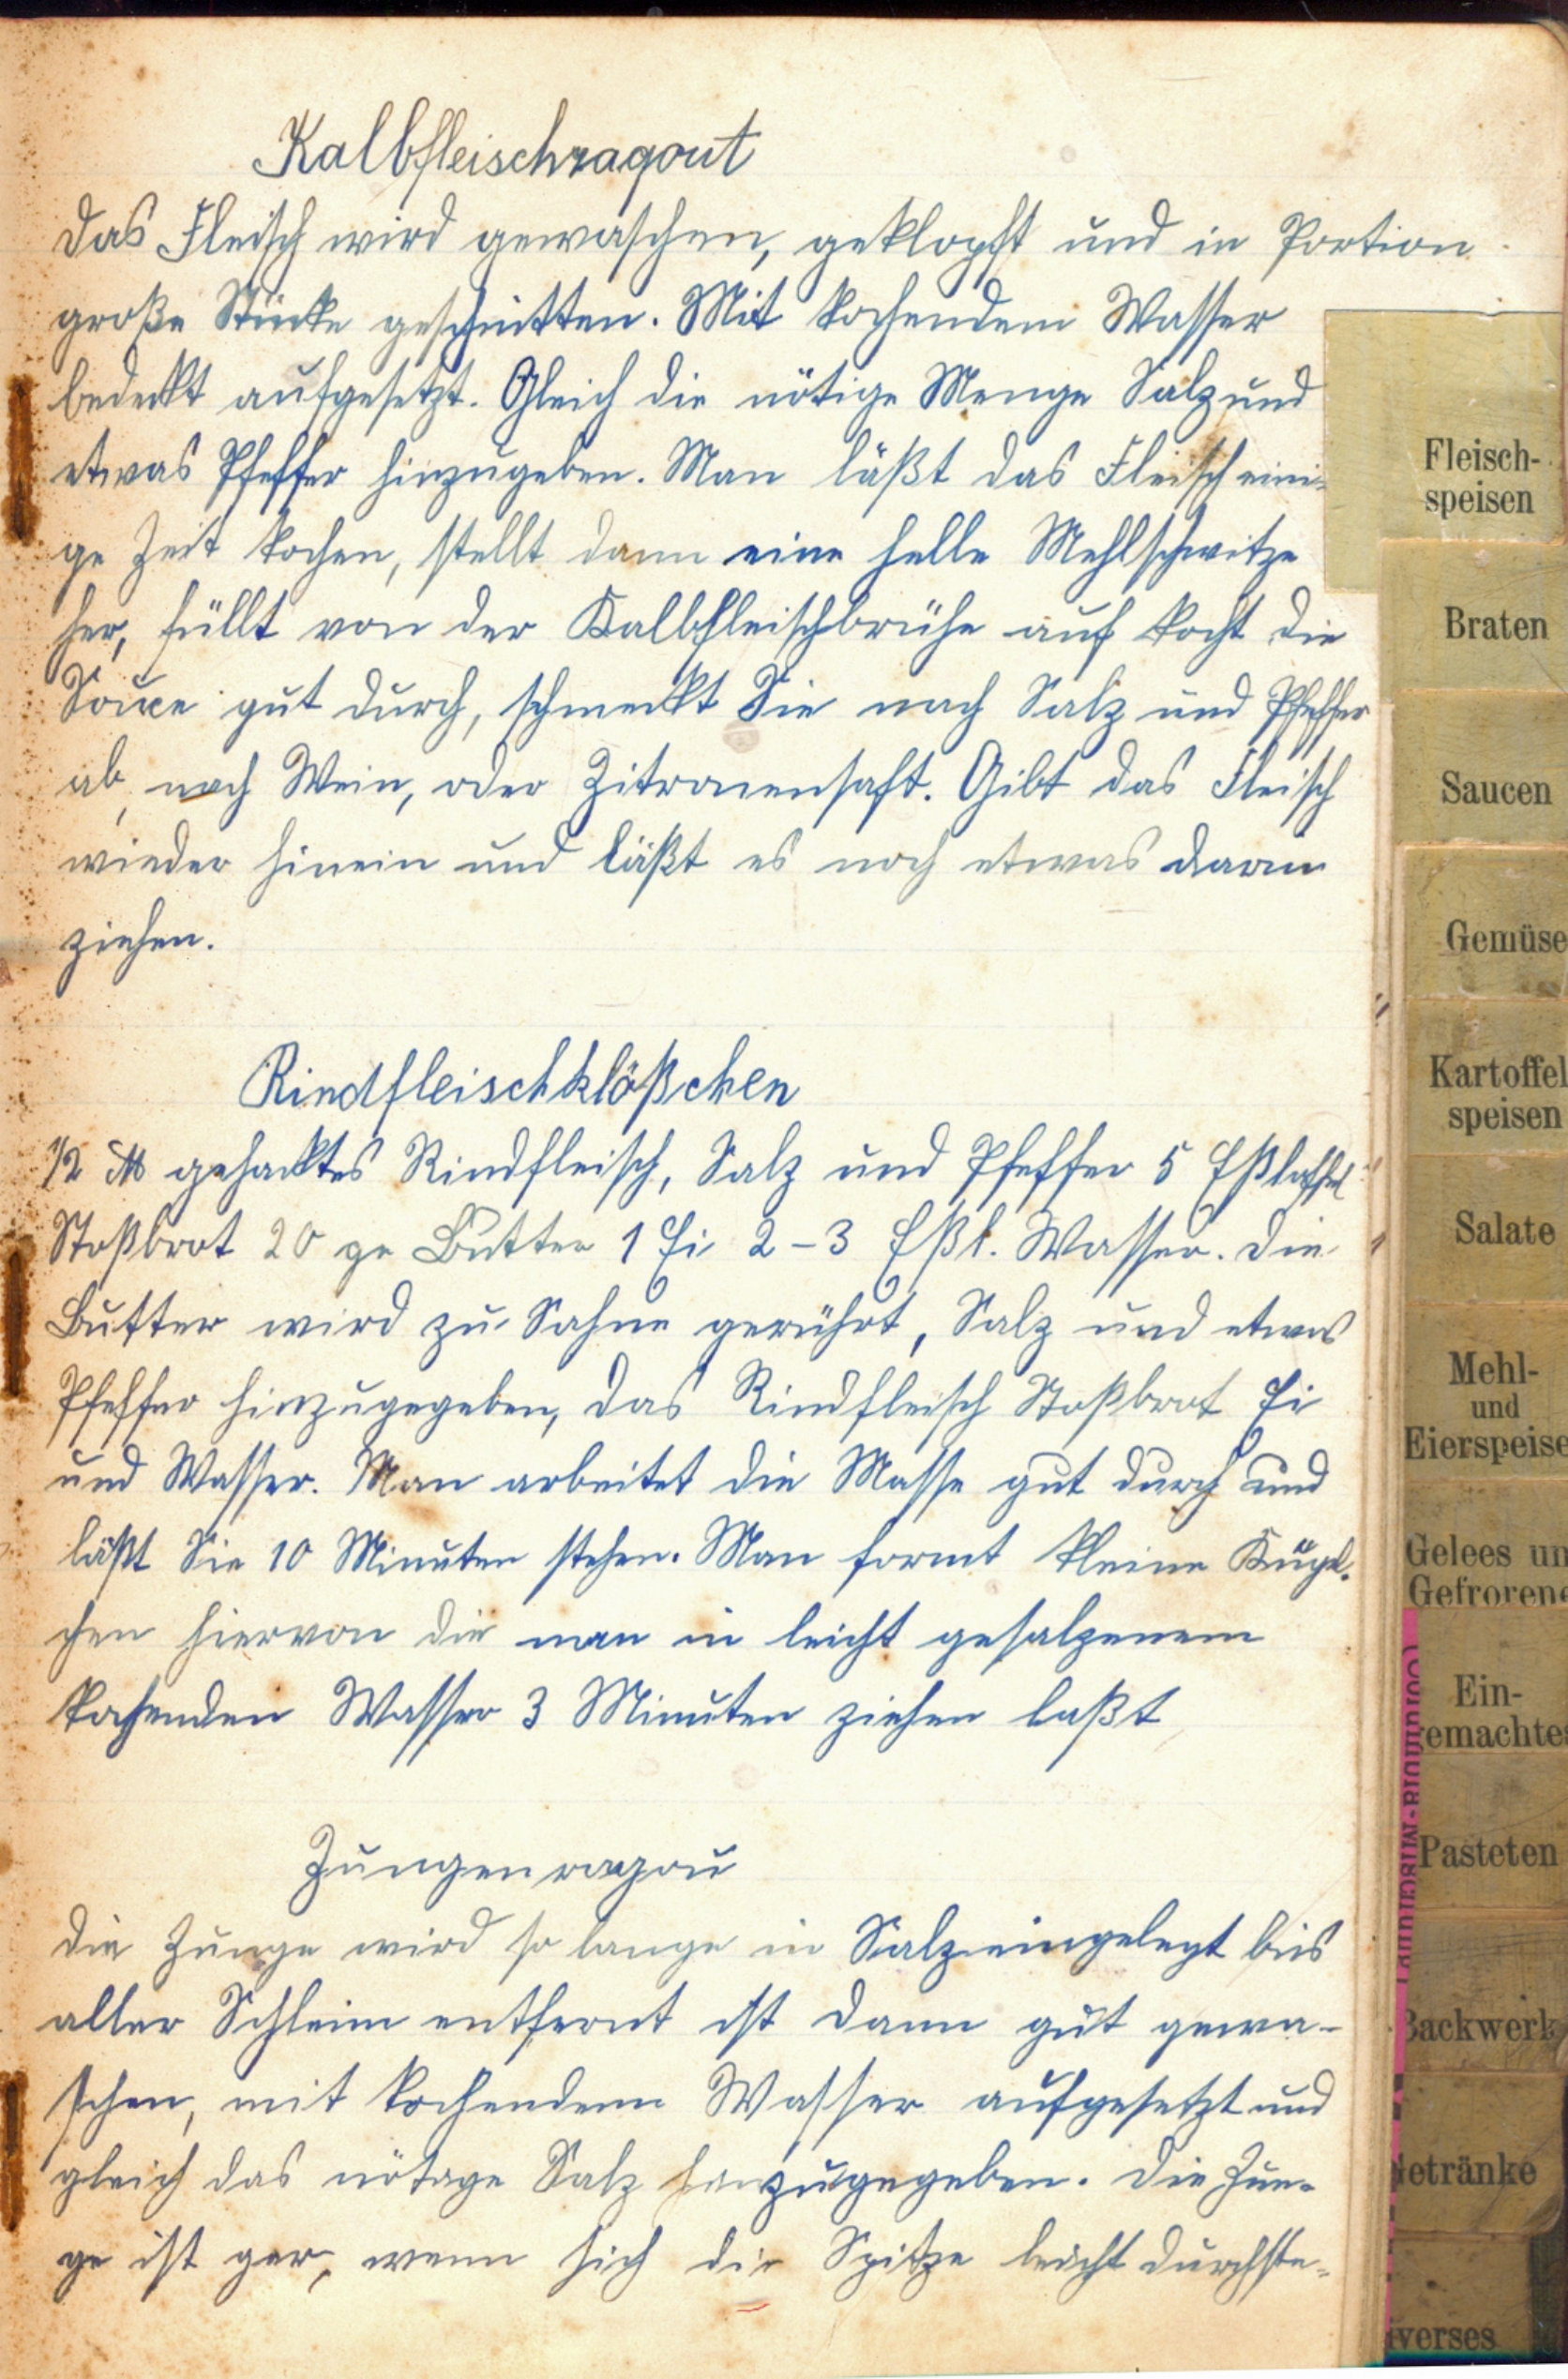 Kalbfleischragout
Das Fleisch wird gewaschen, geklopft und in Portion
große Stücke geschnitten. Mit kochendem Wasser
bedeckt aufgesetzt. Gleich die nötige Menge Salz und
etwas Pfeffer hinzugeben. Man läßt das Fleisch eini-
ge Zeit kochen, stellt dann eine helle Mehlschwitze
her, füllt von der Kalbfleischbrühe auf kocht die
Souce gut durch, schmeckt Sie nach Salz und Pfeffer
ab, nach Wein, oder Zitronensaft. Gibt das Fleisch
wieder hinein und läßt es noch etwas darin
ziehen.
Rindfleischklößchen
1/2 ℔ gehacktes Rindfleisch, Salz und Pfeffer 5 Eßloffel
Stoßbrot 20 gr Butter 1 Ei 2-3 Eßl. Wasser. Die
Butter wird zu Sahne gerührt, Salz und etwas
Pfeffer hinzugegeben, das Rindfleisch Stoßbrot Ei
und Wasser. Man arbeitet die Masse gut durch und
läßt Sie 10 Minuten stehen. Man formt kleine Kügel-
chen hiervon die man in leicht gesalzenem
kochenden Wasser 3 Minuten ziehen laßt
Zungenragou
Die Zunge wird so lange in Salz eingelegt bis
aller Schleim entfernt ist dann gut gewa-
schen, mit kochendem Wasser aufgesetzt und
gleich das nötige Salz hinzugegeben. Die Zun-
ge ist gar, wenn sich die Spitze leicht durchste-
Fleisch-
speisen
Braten
Saucen
Gemüse
Kartoffel
speisen
Salate
Mehl-
und
Eierspeise
Gelees un
Gefrorene
Ein-
gemachtes
Pasteten
Backwerk
Getränke
iverses